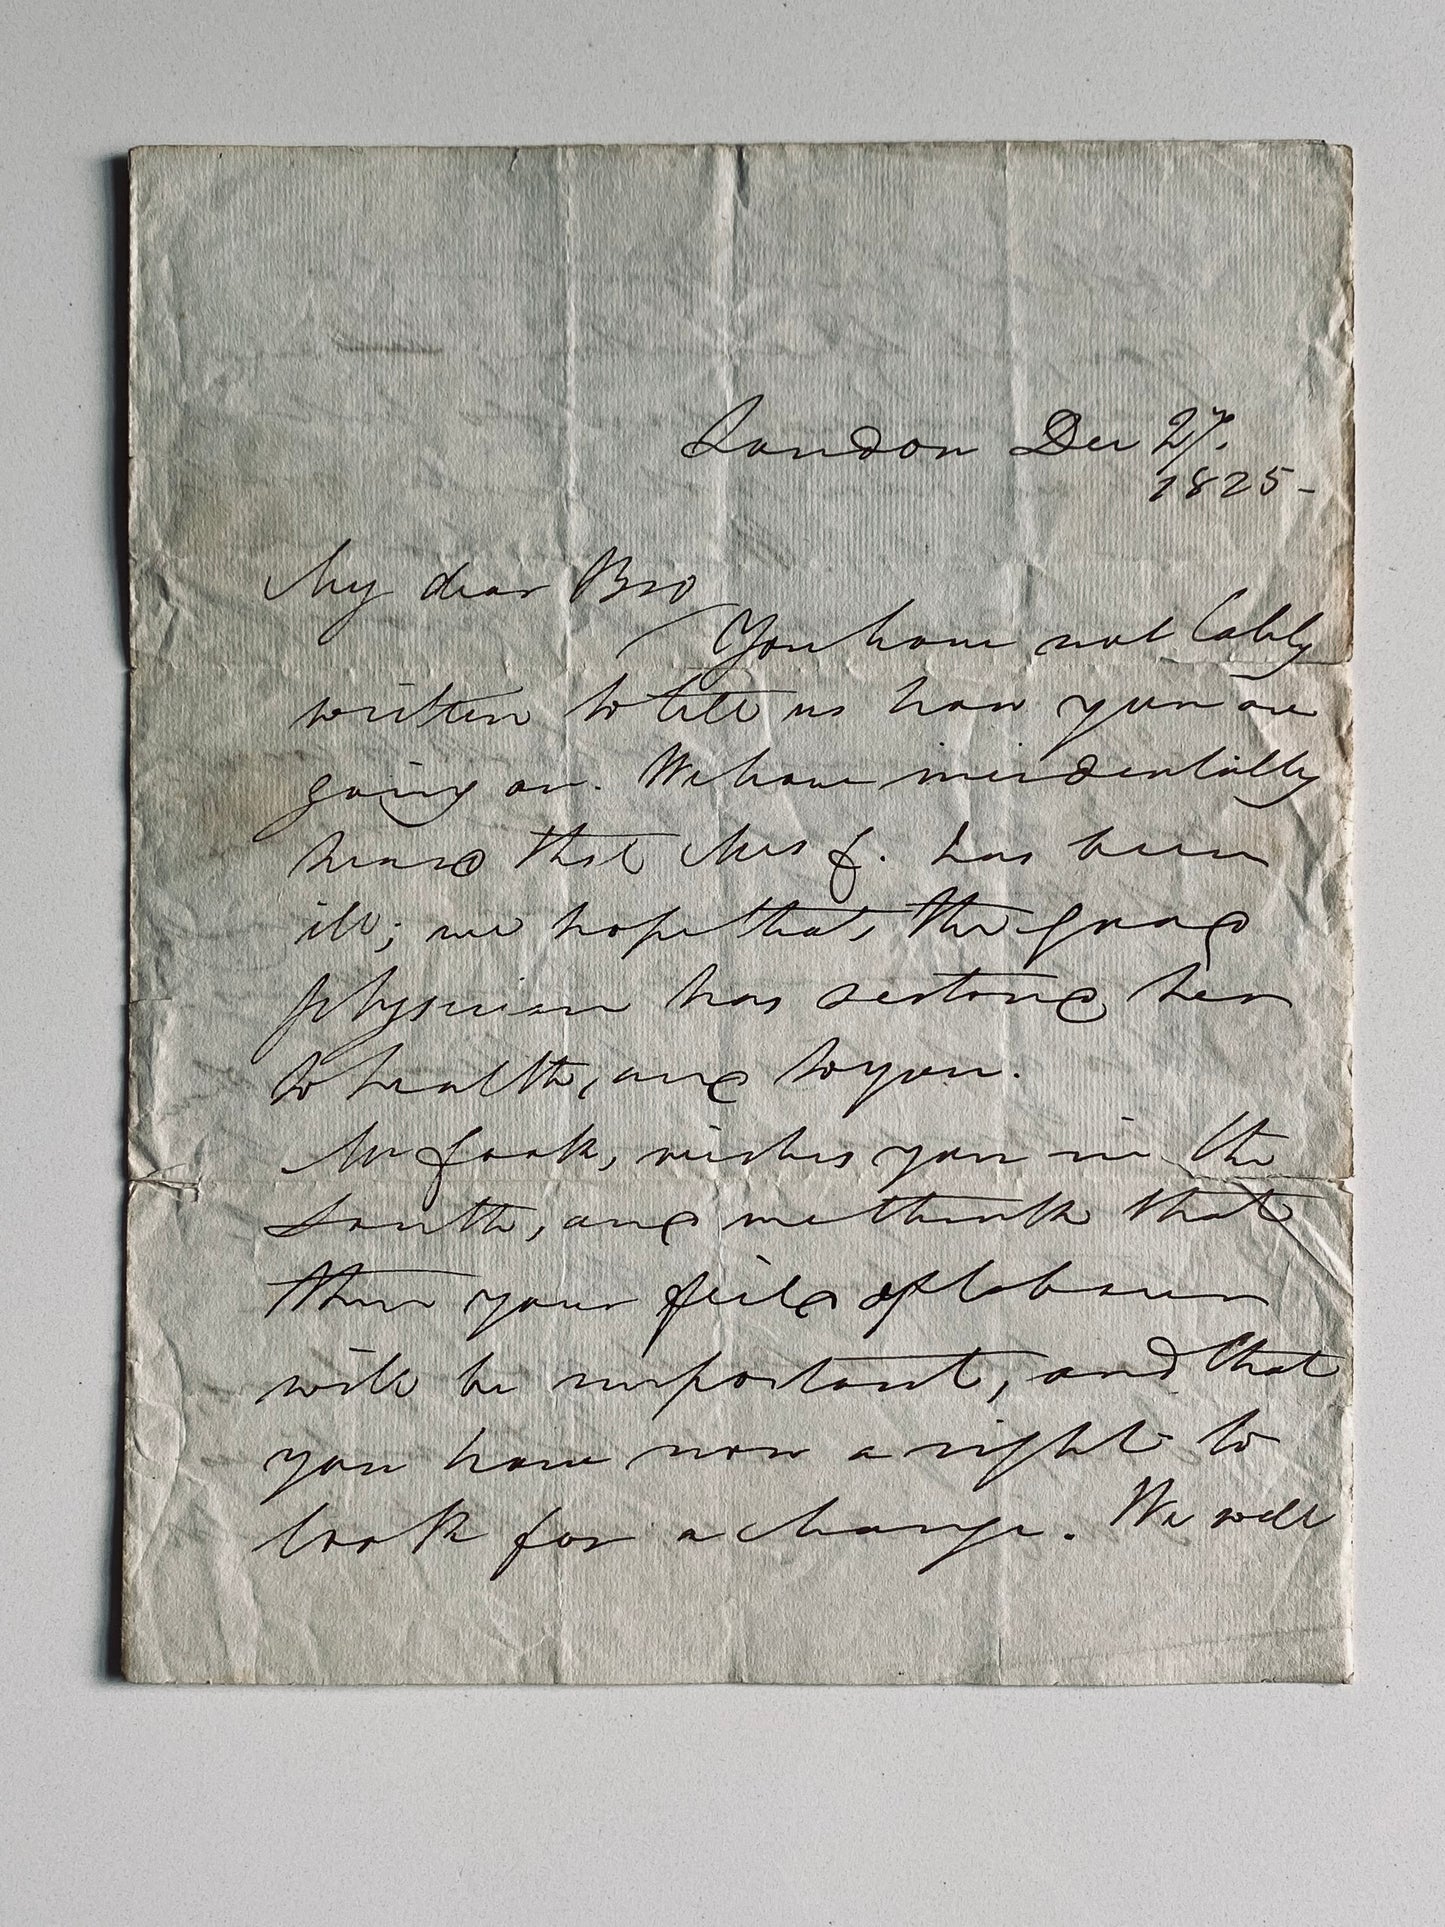 London Dec 27.
1825-
My dear Bro
You have not lately
written to tell us how you are
going on. We have incidentally
heard that Mrs J. has been
ill; we hope that, the good
physician has restored her
to health, and to you.
Mr wishes you in the
South, and we think that
there your field of labour
will be important, and that
you have now a right to
look for a change. We will